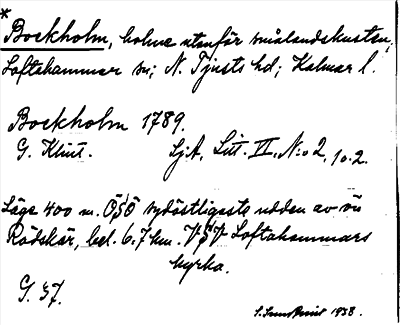 *
Bockholm, holme utanför smålandskusten,
Loftahammar sn; N. Tjusts hd; Kalmar l.
Bockholm 1789.
G. Klint. Sj.A. Litt. II. N:o 2, 10.2.
Läge 400 m. OSO sydöstligaste udden av ön
Rädskär, bel. 6.7 km. VSV Loftahammars
kyrka.
G. 57.
1938.